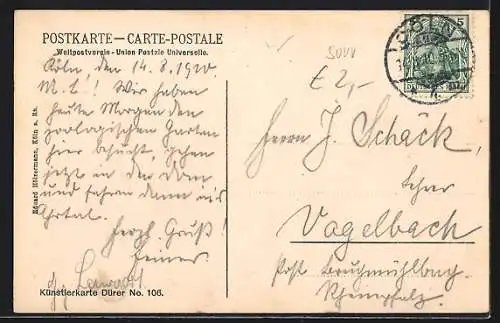 POSTKARTE — CARTE-POSTALE
Weltpostverein - Union Postale Universelle.
Köln, den 14. 8. 1910.
M. L.! Wir haben
heute Morgen den
zoologischen Garten
hier besucht, gehen
jetzt in den Dom
und fahren dann ins
Ahrtal.
Herzl. Gruß!
Eduard Hölzermann, Köln a. Rh.
Künstlerkarte Dürer No. 106.
5
£ 2,-
Herrn J. Schäck,
Lehrer
Vogelbach
Post Bruchmühlbach
Rheinpfalz.